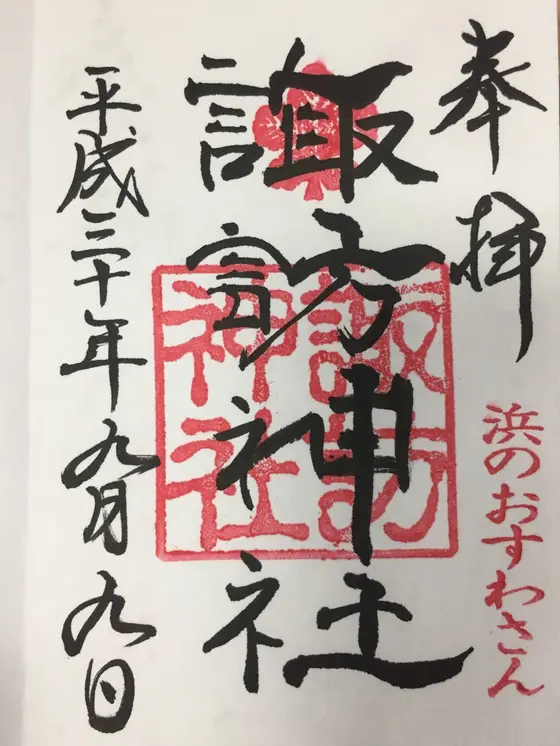 奉拝
浜のおすわさん
諏訪神社
諏訪神社
平成三十年九月九日